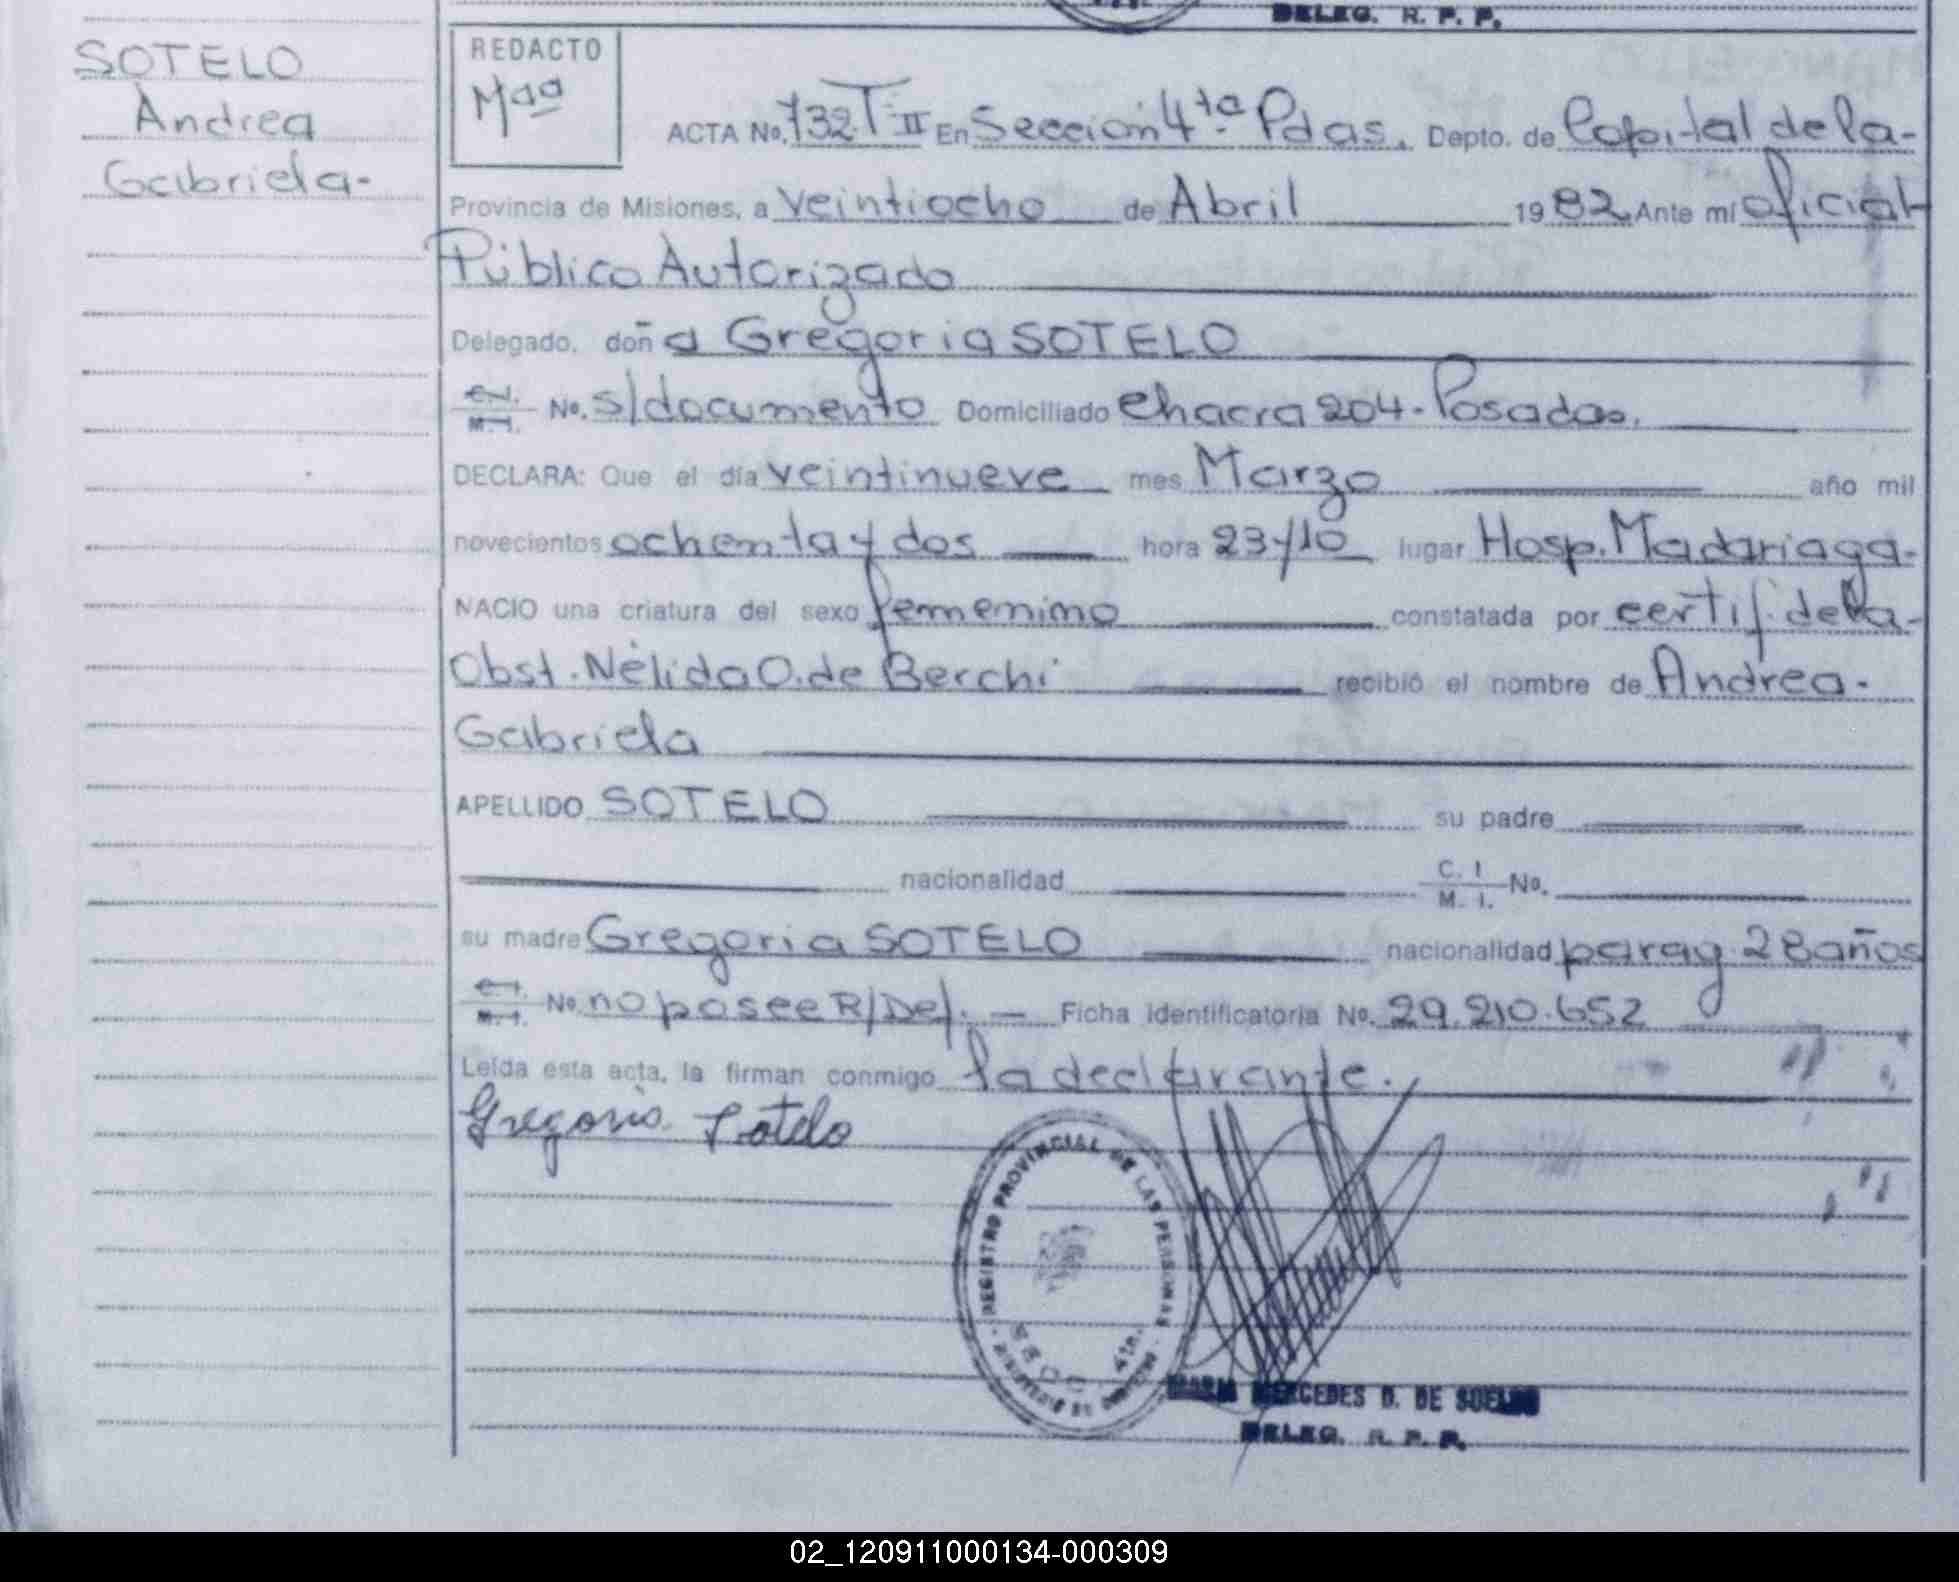 DELEG. R. P. P.
SOTELO
Andrea
Gabriela-
REDACTO
ACTA No. 732 T II En Sección 4ta Pdas. Depto. de Capital de la-
Provincia de Misiones, a veintiocho de Abril 1982 Ante mí oficial
Público Autorizado
Delegado, doña Gregoria SOTELO
C.I. M.I. No. s/documento Domiciliado Chacra 204-Posadas.
DECLARA: Que el día veintinueve mes Marzo año mil
novecientos ochenta y dos hora 23y10 lugar Hosp. Madariaga-
NACIO una criatura del sexo femenino constatada por certif. de la-
Obst. Nélida O. de Berchi recibió el nombre de Andrea-
Gabriela
APELLIDO SOTELO su padre
nacionalidad C. I. M. I. No.
su madre Gregoria SOTELO nacionalidad parag. 28 años
C.I. M.I. No. no posee R/De/. Ficha identificatoria No. 29.210.652
Leída esta acta, la firman conmigo la declarante.
Gregoria Sotelo
REGISTRO PROVINCIAL DE LAS PERSONAS
SECC. 4ta.
MARIA MERCEDES D. DE SUELDO
DELEG. R. P. P.
02_120911000134-000309